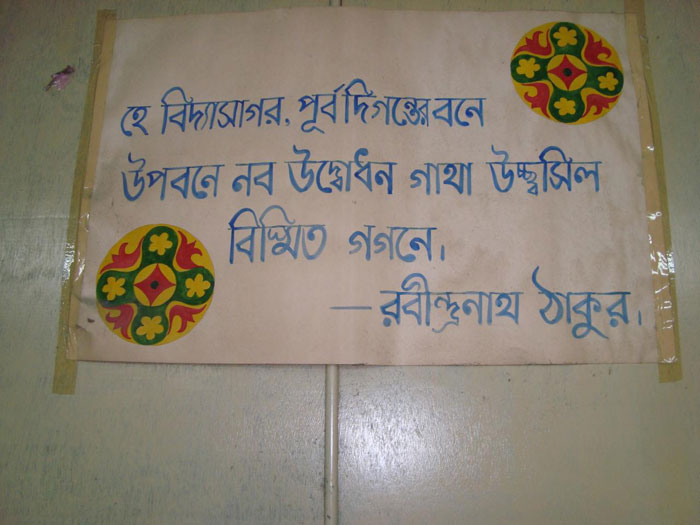 হে বিদ্যাসাগর, পূর্ব দিগন্তের বনে
উপবনে নব উদ্বোধন গাথা উচ্ছ্বসিল
বিস্মিত গগনে।
— রবীন্দ্রনাথ ঠাকুর।